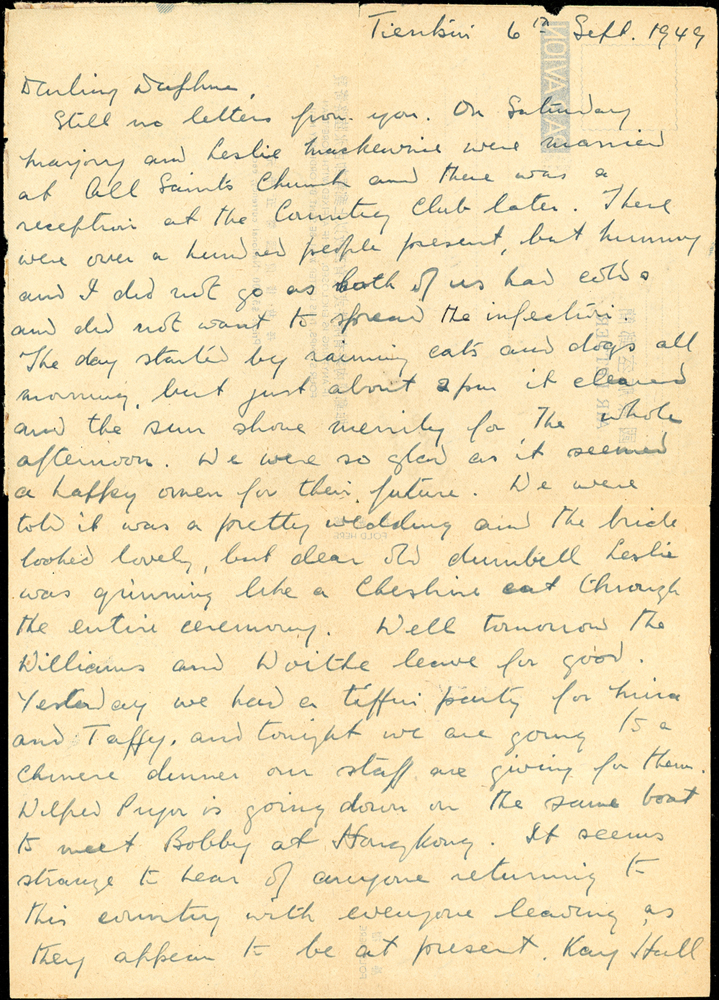 Tientsin 6th Sept. 1949
Darling Daphne,
Still no letters from you. On Saturday
Marjory and Leslie Mackenzie were married
at All Saints Church and there was a
reception at the Country Club later. There
were over a hundred people present, but Mummy
and I did not go as both of us had colds
and did not want to spread the infection.
The day started by raining cats and dogs all
morning, but just about 2 pm it cleared
and the sun shone merrily for the whole
afternoon. We were so glad as it seemed
a happy omen for their future. We were
told it was a pretty wedding and the bride
looked lovely, but dear old dumbell Leslie
was grinning like a Cheshire cat through
the entire ceremony. Well tomorrow the
Williams and Woithe leave for good.
Yesterday we had a tiffin party for
and Taffy, and tonight we are going to a
Chinese dinner our staff are giving for them.
Wilfred Pryor is going down on the same boat
to meet Bobby at Hongkong. It seems
strange to hear of anyone returning to
this country with everyone leaving as
they appear to be at present. Kay Hull
PAR AVION
AIR LETTER